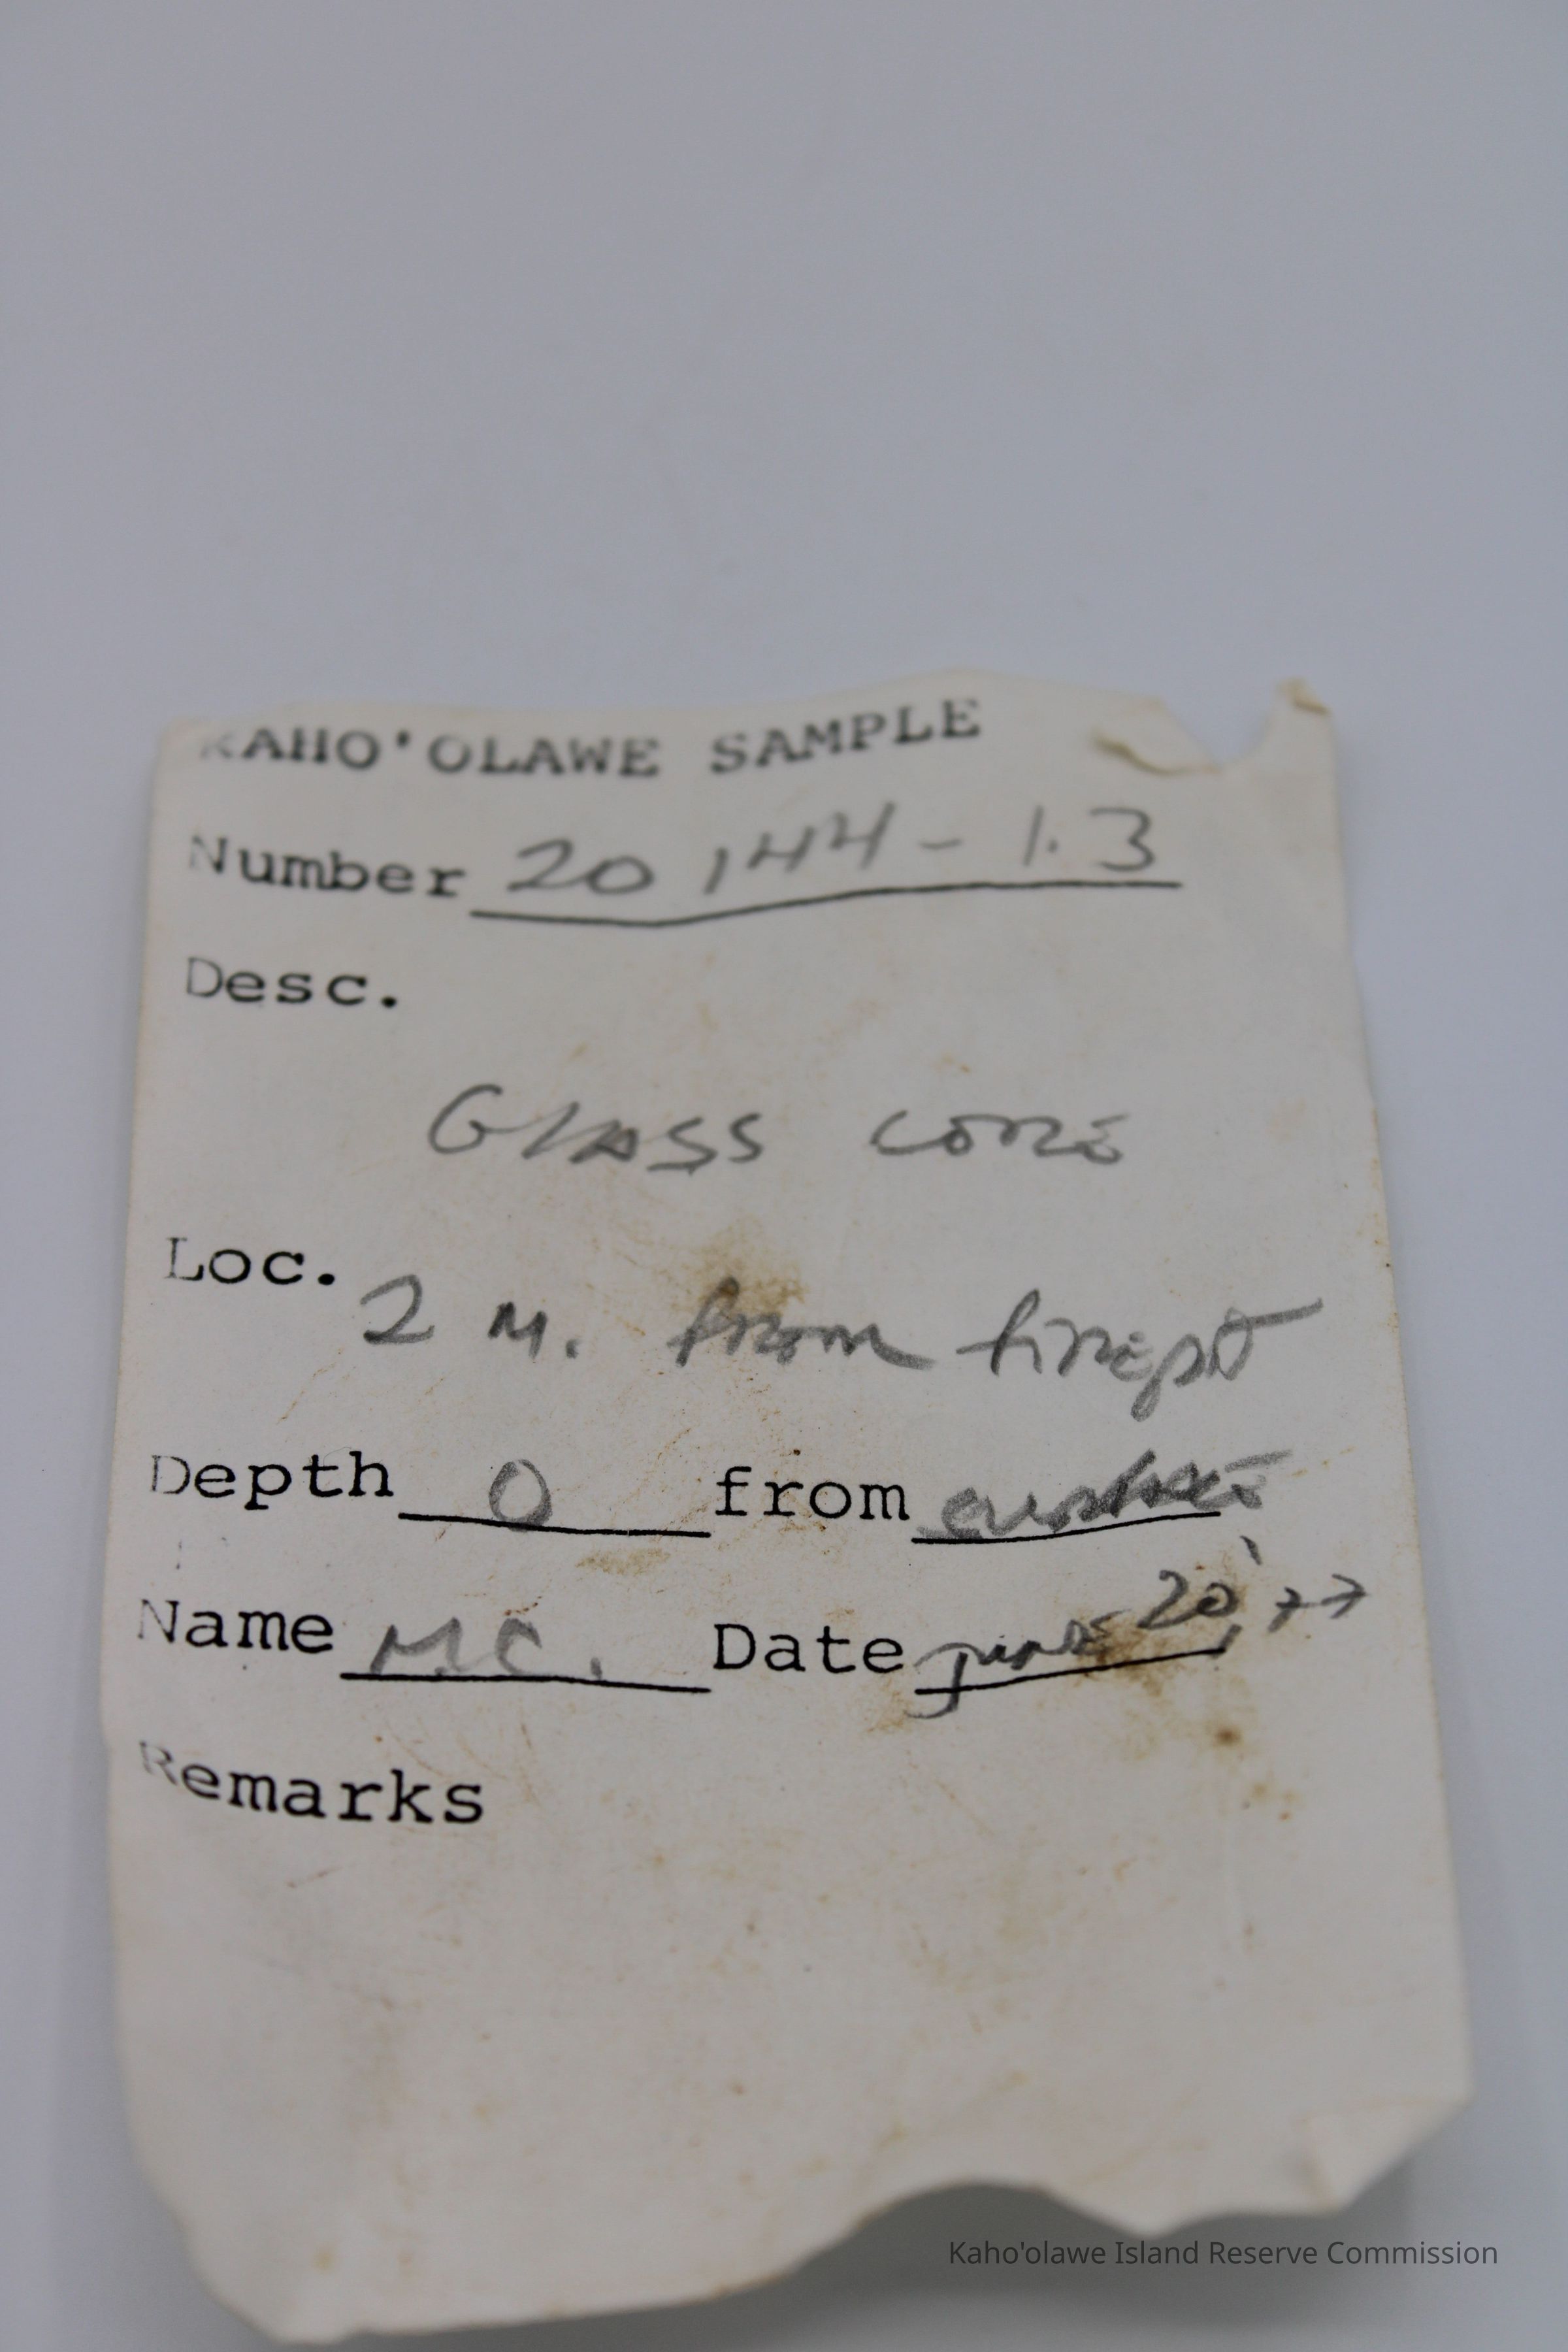 KAHO'OLAWE SAMPLE
Number 20 144 - 1.3
Desc.
GLASS CORE
Loc.
2 M. from firepit
Depth 0 from surface
Name M.C. Date June 20, '77
Remarks
Kaho'olawe Island Reserve Commission